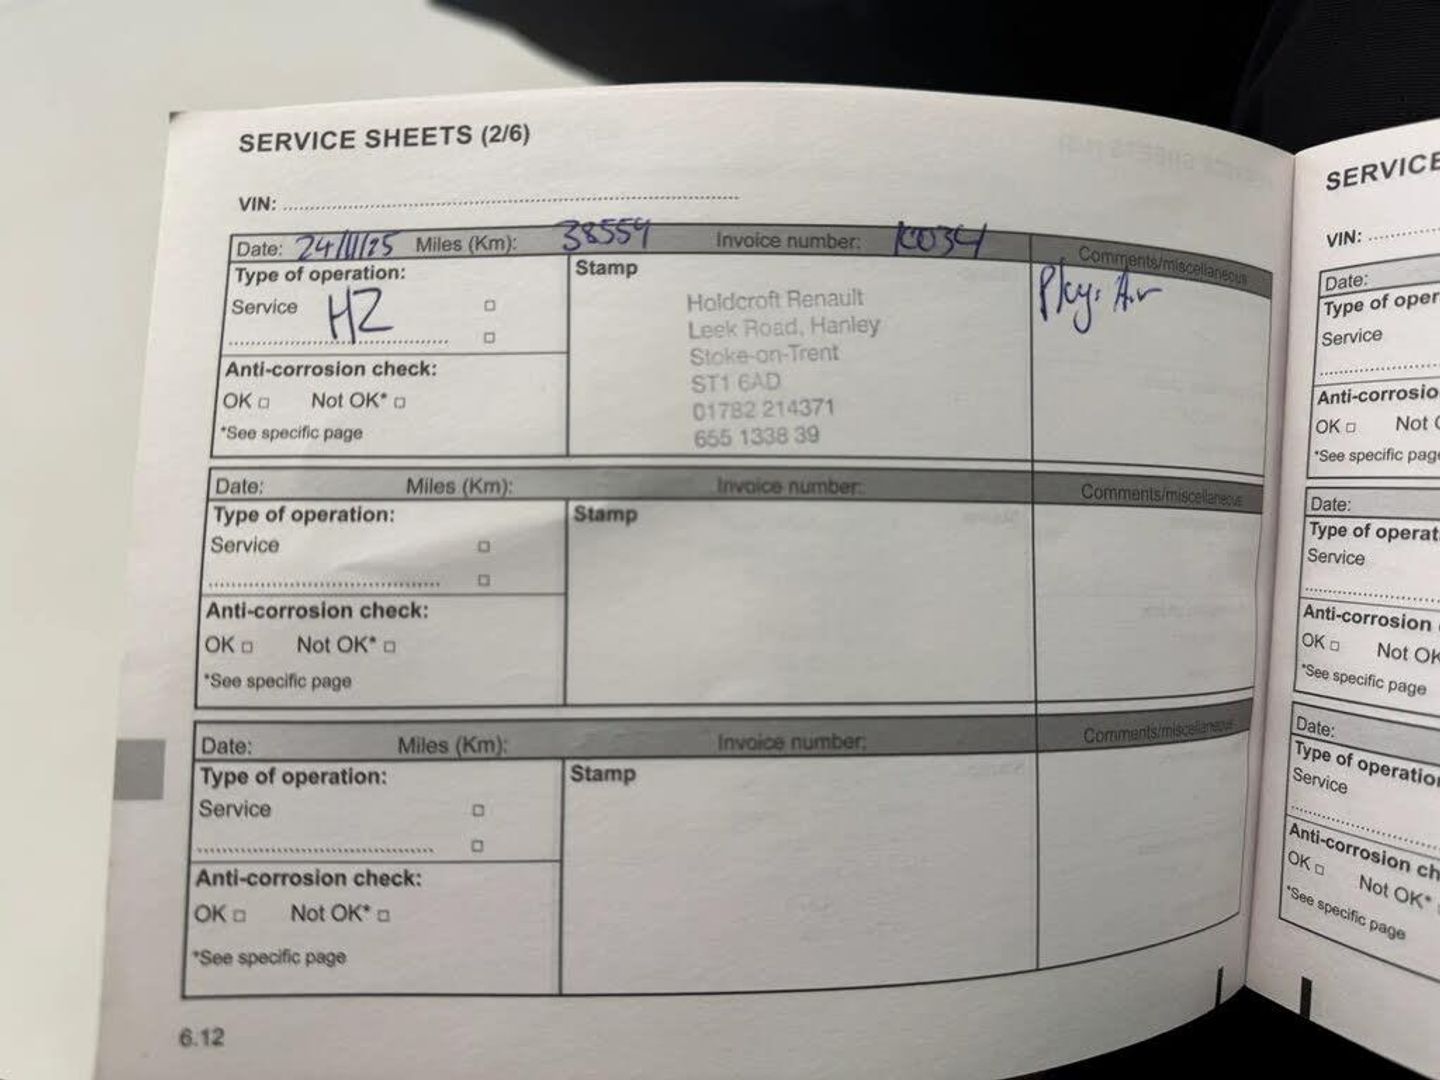 SERVICE SHEETS (2/6)
VIN:
Date: 24/11/25 Miles (Km): 38559 Invoice number: 10034 Comments/miscellaneous
Type of operation: Stamp
Service HZ
Holdcroft Renault
Leek Road, Hanley
Stoke-on-Trent
ST1 6AD
01782 214371
655 1338 39
Anti-corrosion check:
OK Not OK*
*See specific page
Date: Miles (Km): Invoice number: Comments/miscellaneous
Type of operation: Stamp
Service
Anti-corrosion check:
OK Not OK*
*See specific page
Date: Miles (Km): Invoice number: Comments/miscellaneous
Type of operation: Stamp
Service
Anti-corrosion check:
OK Not OK*
*See specific page
6.12
SERVICE
VIN:
Date:
Type of oper
Service
Anti-corrosio
OK Not
*See specific pag
Date:
Type of operat
Service
Anti-corrosion
OK Not OK
*See specific page
Date:
Type of operatio
Service
Anti-corrosion ch
OK Not OK*
*See specific page